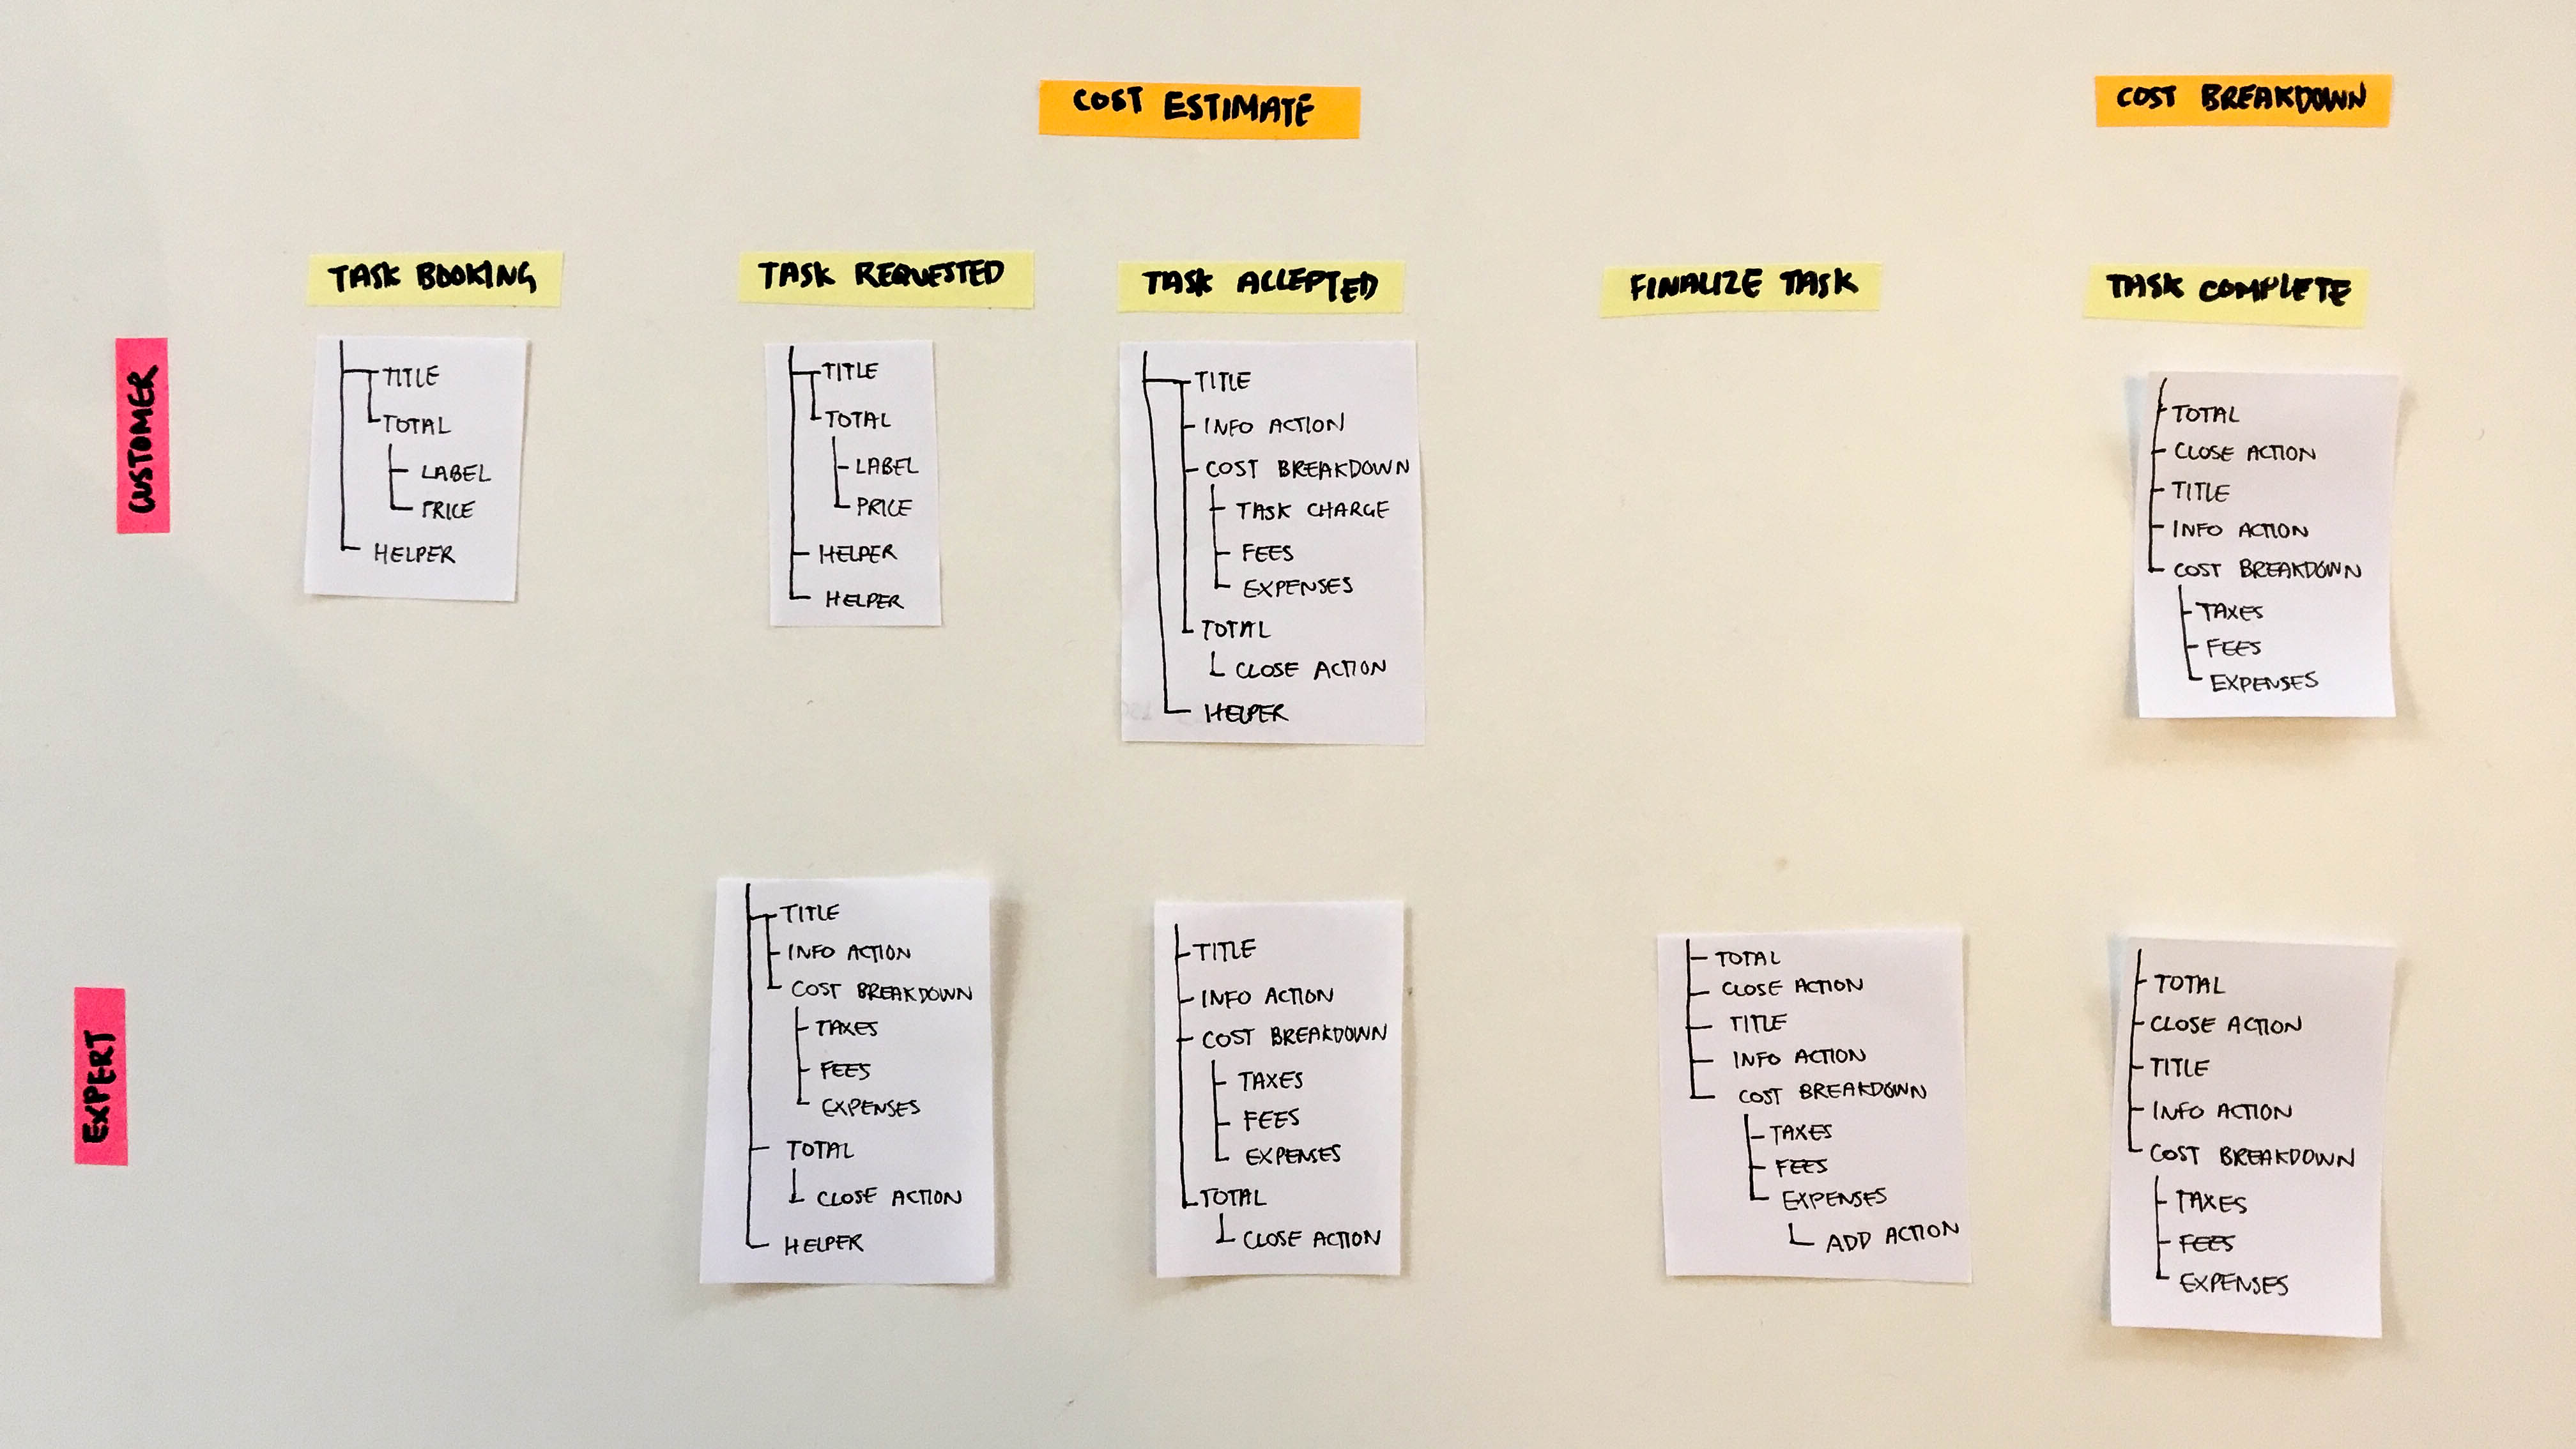 COST ESTIMATE
COST BREAKDOWN
TASK BOOKING
TASK REQUESTED
TASK ACCEPTED
FINALIZE TASK
TASK COMPLETE
CUSTOMER
TITLE
TOTAL
LABEL
PRICE
HELPER
TITLE
TOTAL
LABEL
PRICE
HELPER
HELPER
TITLE
INFO ACTION
COST BREAKDOWN
TASK CHARGE
FEES
EXPENSES
TOTAL
CLOSE ACTION
HELPER
TOTAL
CLOSE ACTION
TITLE
INFO ACTION
COST BREAKDOWN
TAXES
FEES
EXPENSES
EXPERT
TITLE
INFO ACTION
COST BREAKDOWN
TAXES
FEES
EXPENSES
TOTAL
CLOSE ACTION
HELPER
TITLE
INFO ACTION
COST BREAKDOWN
TAXES
FEES
EXPENSES
TOTAL
CLOSE ACTION
TOTAL
CLOSE ACTION
TITLE
INFO ACTION
COST BREAKDOWN
TAXES
FEES
EXPENSES
ADD ACTION
TOTAL
CLOSE ACTION
TITLE
INFO ACTION
COST BREAKDOWN
TAXES
FEES
EXPENSES